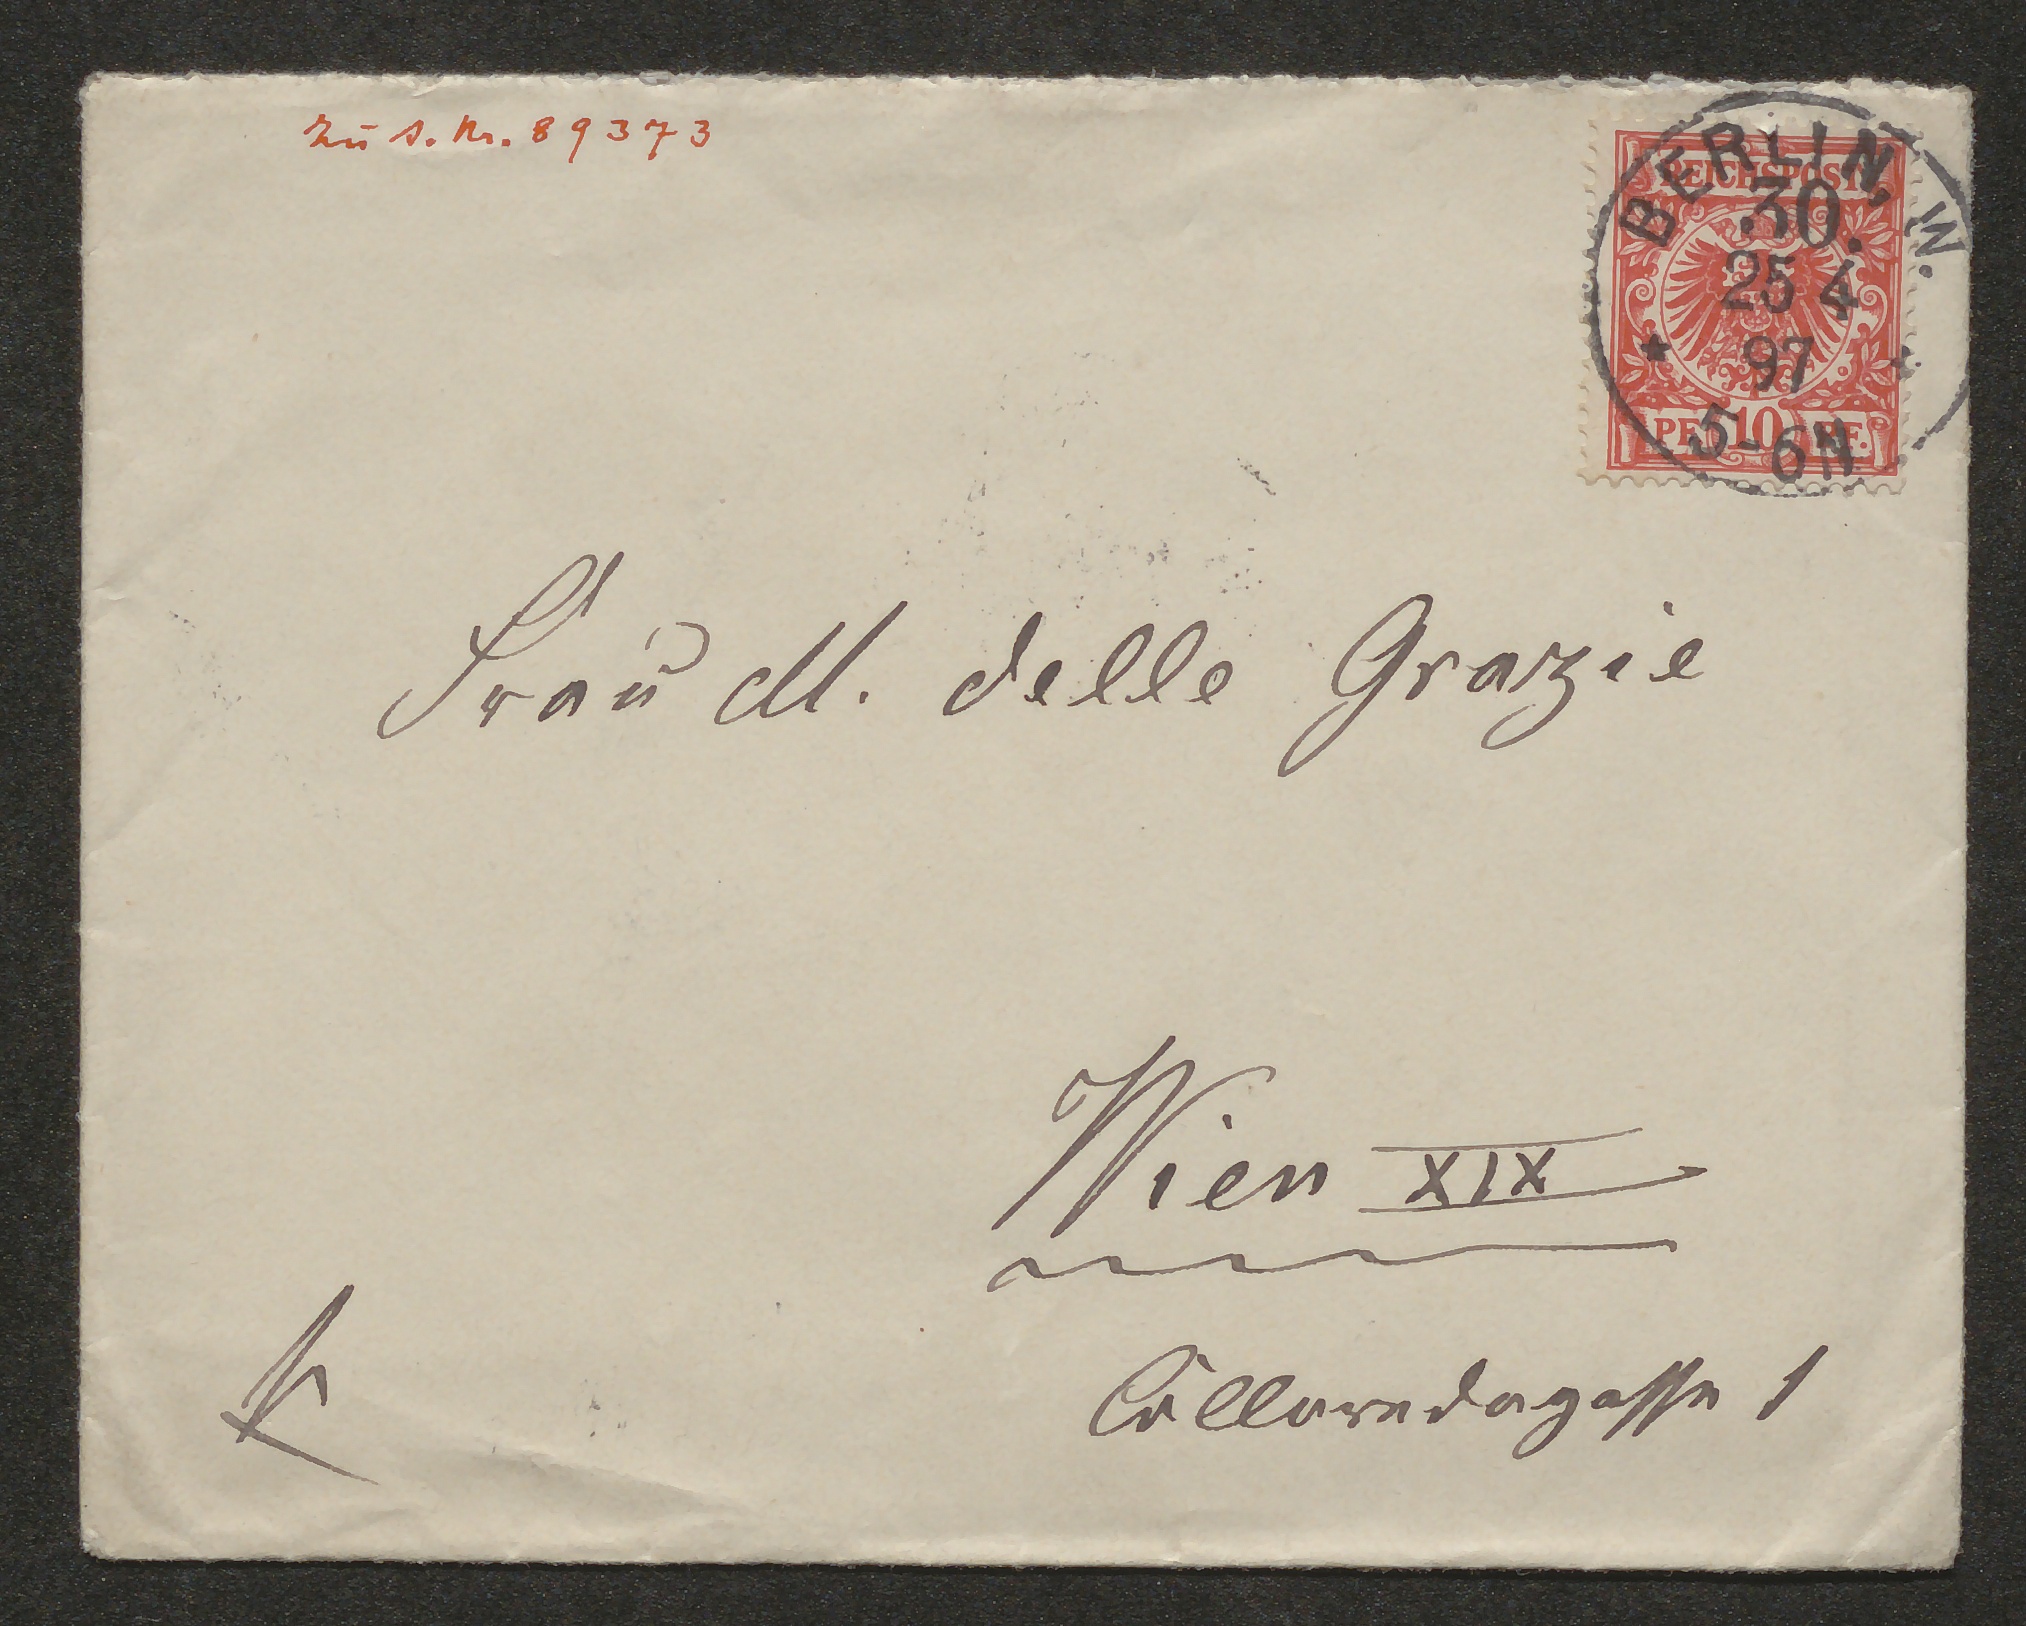 Zu A. Nr. 89373
BERLIN, W.
30.
25 4
97
5-6N
REICHSPOST
PF. 10 PF.
Frau M. delle Grazie
Wien XIX
Colloredogasse 1